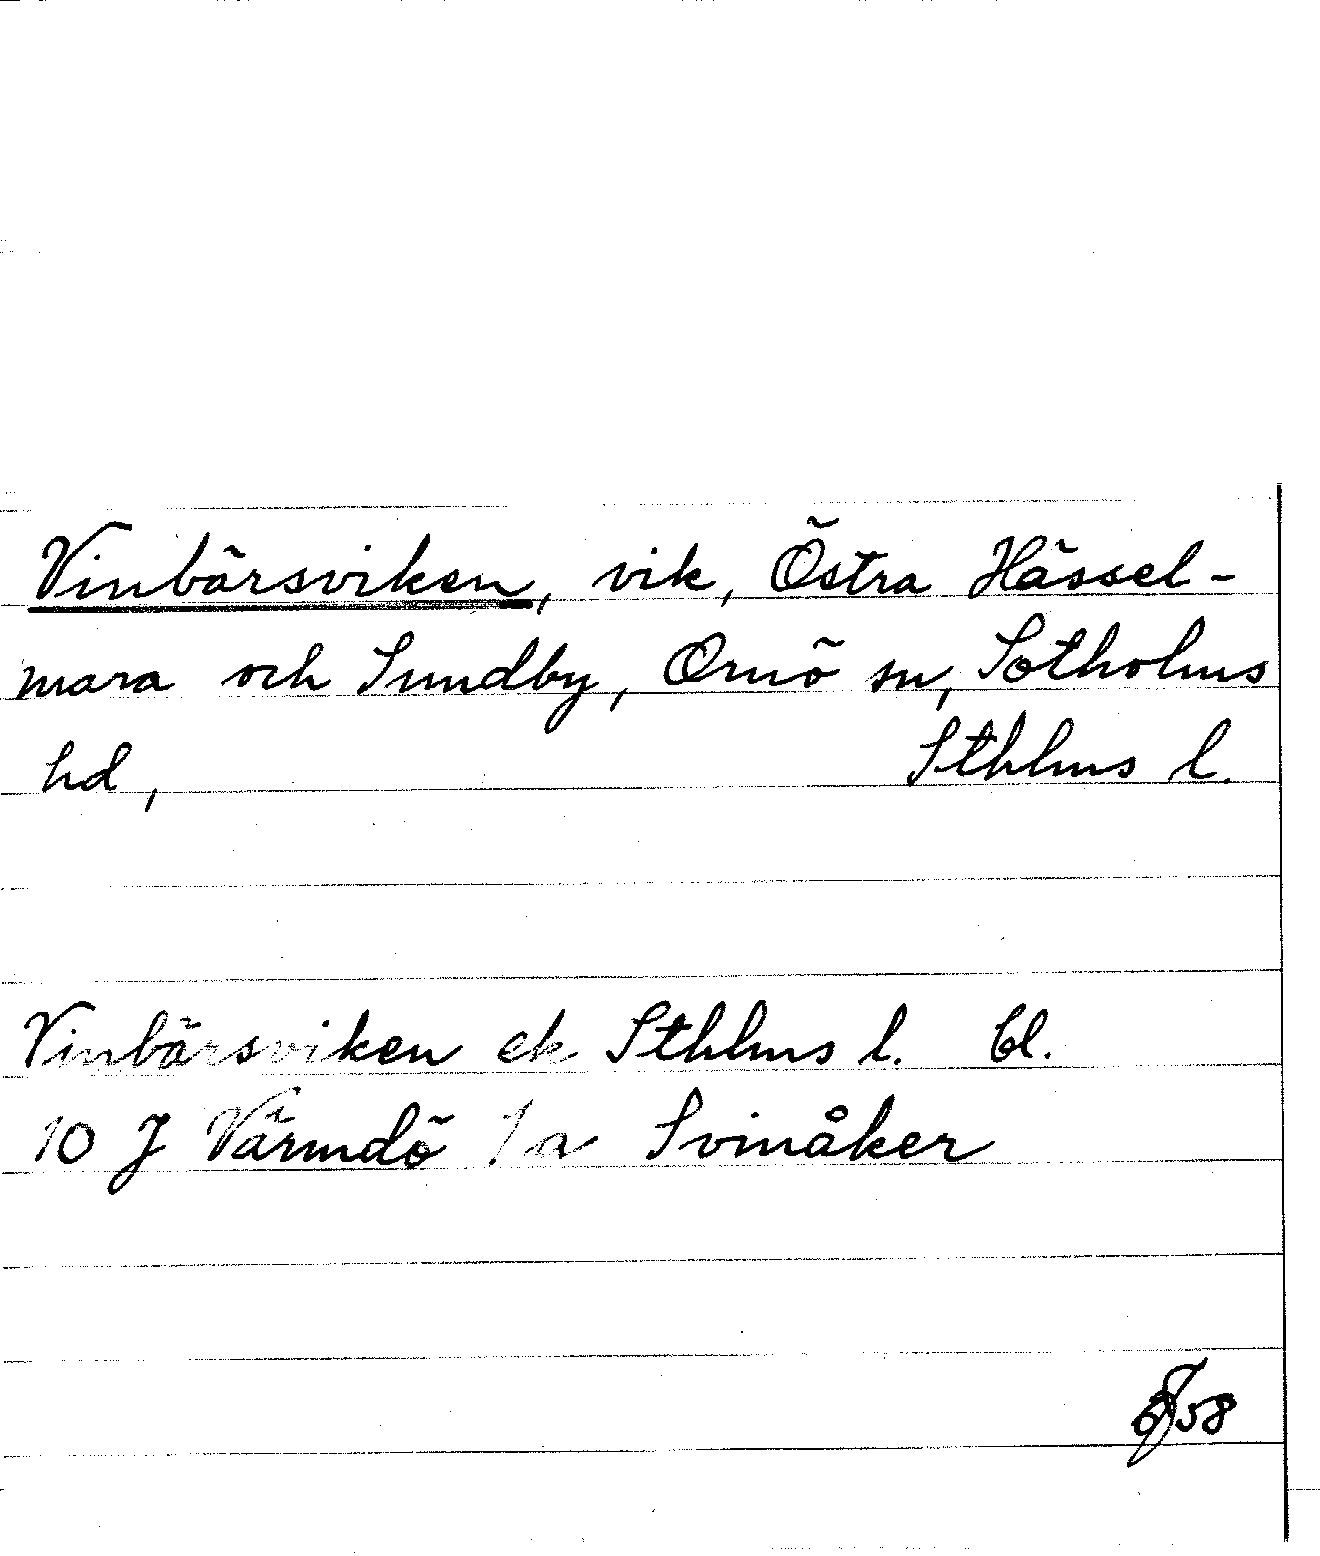 Vinbärsviken, vik, Östra Hässel-
mara och Sundby, Ornö sn, Sotholms
hd, Sthlms l.
Vinbärsviken ek Sthlms l. bl.
10 J Värmdö 1 a Svinåker
58